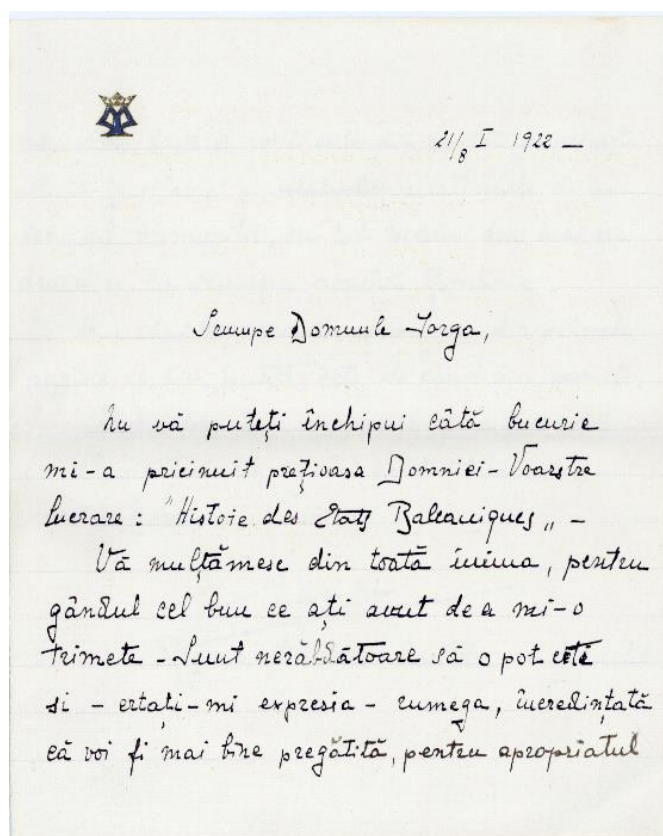 21/8 I 1922 —
Scumpe Domnule Iorga,
Nu vă puteți închipui câtă bucurie
mi-a pricinuit prețioasa Domniei-Voastre
lucrare : "Histoie des États Balcaniques„ -
Vă mulțămesc din toată inima, pentru
gândul cel bun ce ați avut de a mi-o
trimete - Sunt nerăbdătoare să o pot citi
si - ertați-mi expresia - rumega, încredințată
că voi fi mai bine pregătită, pentru apropriatul